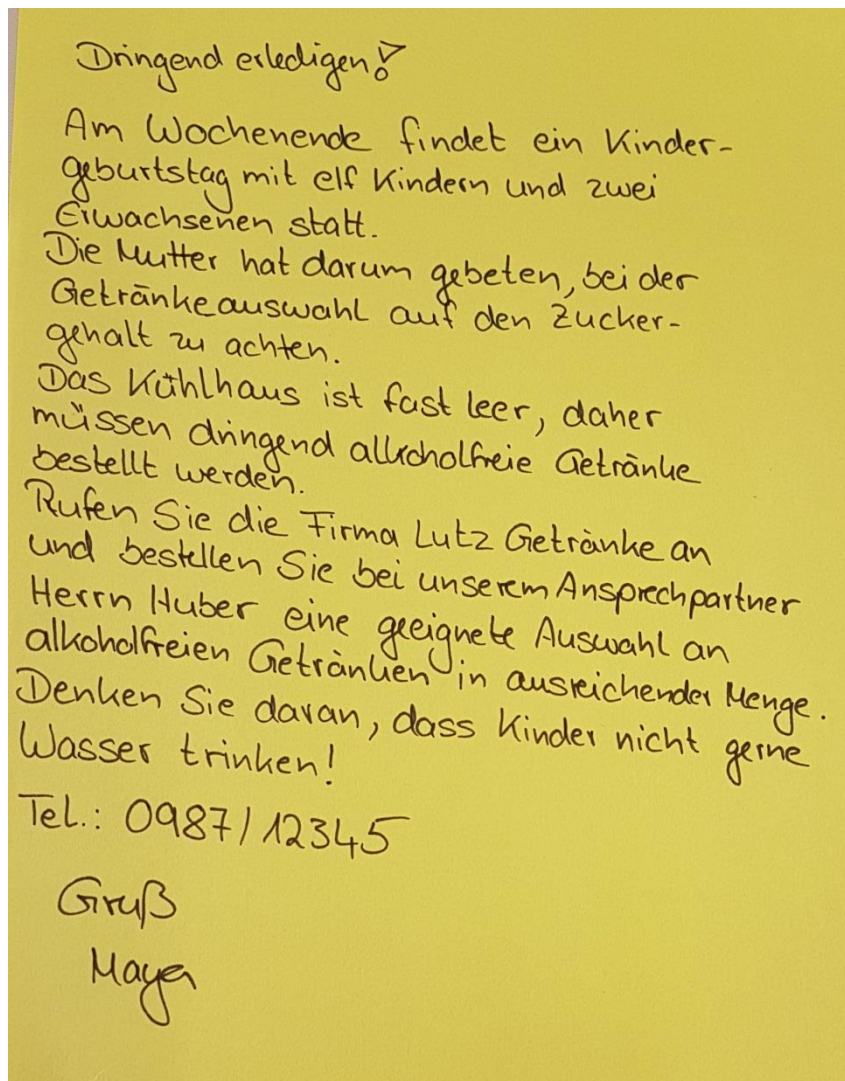 Dringend erledigen!
Am Wochenende findet ein Kinder-
geburtstag mit elf Kindern und zwei
Erwachsenen statt.
Die Mutter hat darum gebeten, bei der
Getränkeauswahl auf den Zucker-
gehalt zu achten.
Das Kühlhaus ist fast leer, daher
müssen dringend alkoholfreie Getränke
bestellt werden.
Rufen Sie die Firma Lutz Getränke an
und bestellen Sie bei unserem Ansprechpartner
Herrn Huber eine geeignete Auswahl an
alkoholfreien Getränken in ausreichender Menge.
Denken Sie daran, dass Kinder nicht gerne
Wasser trinken!
Tel.: 0987/12345
Gruß
Mayer